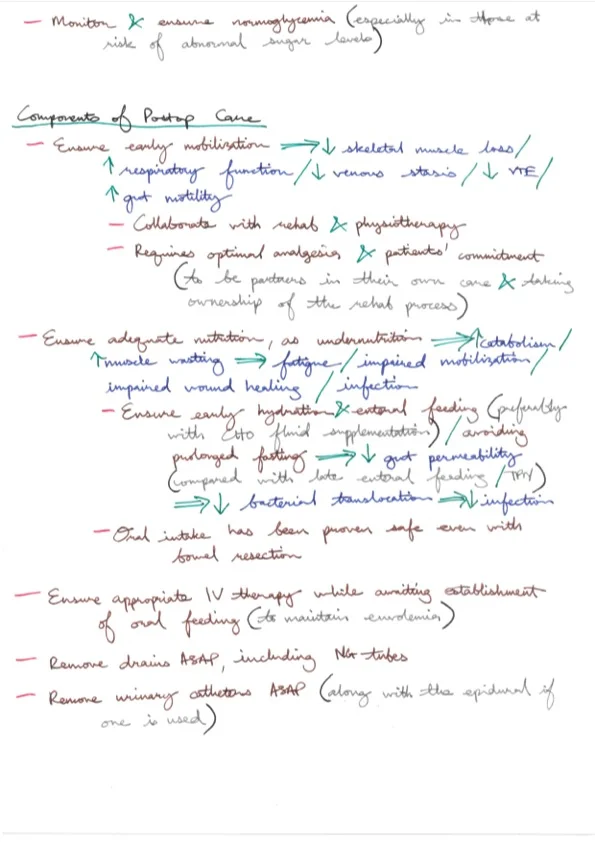 — Monitor & ensure normoglycemia (especially in those at
risk of abnormal sugar levels)
Components of Postop Care
— Ensure early mobilization ⇒ ↓ skeletal muscle loss /
↑ respiratory function / ↓ venous stasis / ↓ VTE /
↑ gut motility
— Collaborate with rehab & physiotherapy
— Requires optimal analgesia & patients' commitment
(to be partners in their own care & taking
ownership of the rehab process)
— Ensure adequate nutrition, as undernutrition ⇒ ↑ catabolism /
↑ muscle wasting ⇒ fatigue / impaired mobilization /
impaired wound healing / infection
— Ensure early hydration & enteral feeding (preferably
with CHO fluid supplementation) / avoiding
prolonged fasting ⇒ ↓ gut permeability
(compared with late enteral feeding / TPN)
⇒ ↓ bacterial translocation ⇒ ↓ infection
— Oral intake has been proven safe even with
bowel resection
— Ensure appropriate IV therapy while awaiting establishment
of oral feeding (to maintain euvolemia)
— Remove drains ASAP, including NG tubes
— Remove urinary catheters ASAP (along with the epidural if
one is used)